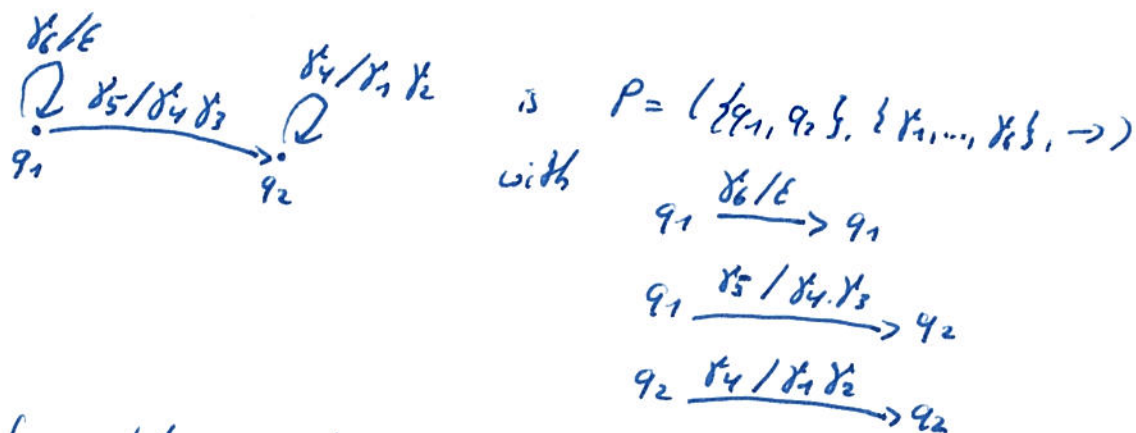 γ6/ε
γ5/γ4 γ3
γ4/γ1 γ2
q1
q2
is P = ({q1, q2}, {γ1,..., γ6}, →)
with
q1 γ6/ε → q1
q1 γ5/γ4.γ3 → q2
q2 γ4/γ1 γ2 → q2